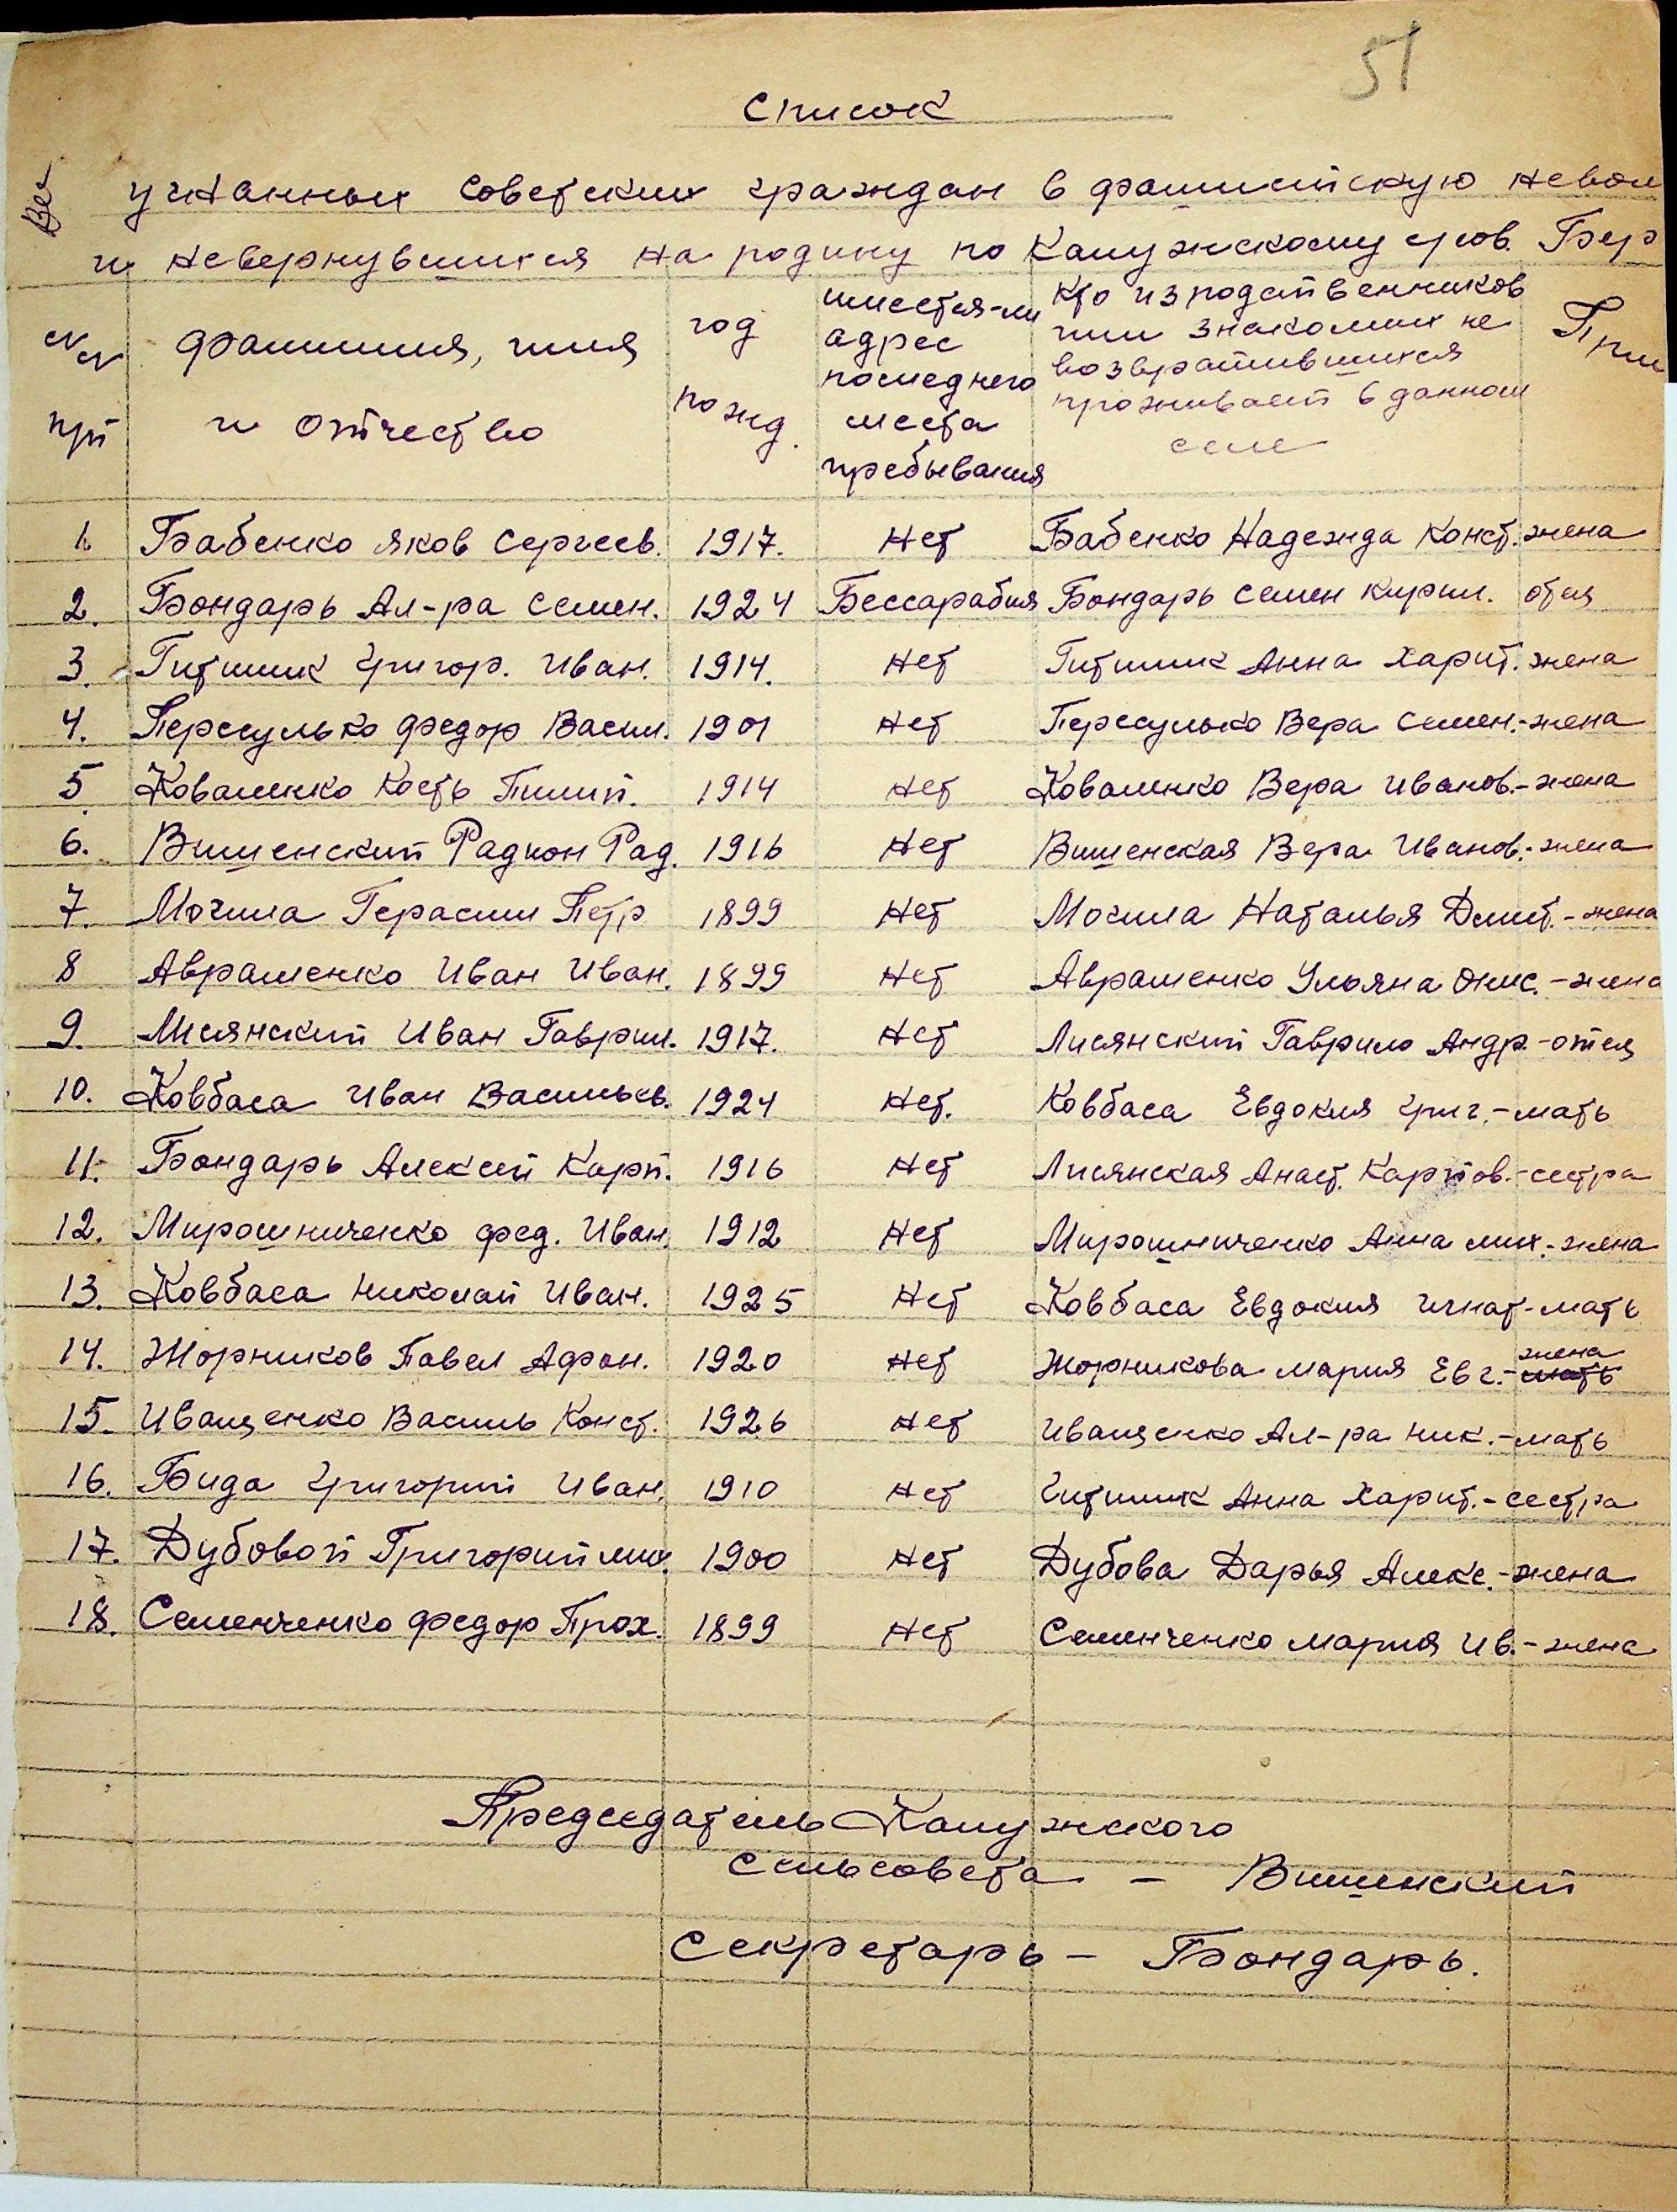 51
Список
Все
угнанных советских граждан в фашистскую невол
и невернувшихся на родину по Калужскому с/сов. Бер
№№ п/п фамилия, имя и отчество год рожд. имеется-ли адрес последнего места пребывания кто из родственников или знакомых не возвратившихся проживает в данном селе При
1. Бабенко Яков Сергеев. 1917. Нет Бабенко Надежда Конст. жена
2. Бондарь Ал-ра Семен. 1924 Бессарабия Бондарь Семен Кирил. отец
3. Гитлик Григор. Иван. 1914. Нет Гитлик Анна Харит. жена
4. Пересулько Федор Васил. 1901 Нет Пересулько Вера Семен.-жена
5. Коваленко Кость Пилип. 1914 Нет Коваленко Вера Иванов.-жена
6. Вишенский Радион Рад. 1916 Нет Вишенская Вера Иванов.-жена
7. Могила Герасим Петр 1899 Нет Могила Наталья Дмит.-жена
8 Авраменко Иван Иван. 1899 Нет Авраменко Ульяна Онис.-жена
9. Лисянский Иван Гаврил. 1917. Нет Лисянский Гаврило Андр-отец
10. Ковбаса Иван Васильев. 1924 Нет. Ковбаса Евдокия Григ.-мать
11. Бондарь Алексей Карп. 1916 Нет Лисянская Анаст. Карпов.-сестра
12. Мирошниченко Фед. Иван. 1912 Нет Мирошниченко Анна Мих.-жена
13. Ковбаса Николай Иван. 1925 Нет Ковбаса Евдокия Игнат-мать
14. Жорников Павел Афон. 1920 Нет Жорникова Мария Евг.-мать жена
15. Иващенко Василь Конст. 1926 Нет Иващенко Ал-ра Ник.-мать
16. Бида Григорий Иван. 1910 Нет Гитлик Анна Харит.-сестра
17. Дубовой Григорий Мих. 1900 Нет Дубова Дарья Алекс.-жена
18. Семенченко Федор Прох. 1899 Нет Семенченко Мария Ив.-жена
Председатель Калужского
Сельсовета - Вишенский
Секретарь - Бондарь.